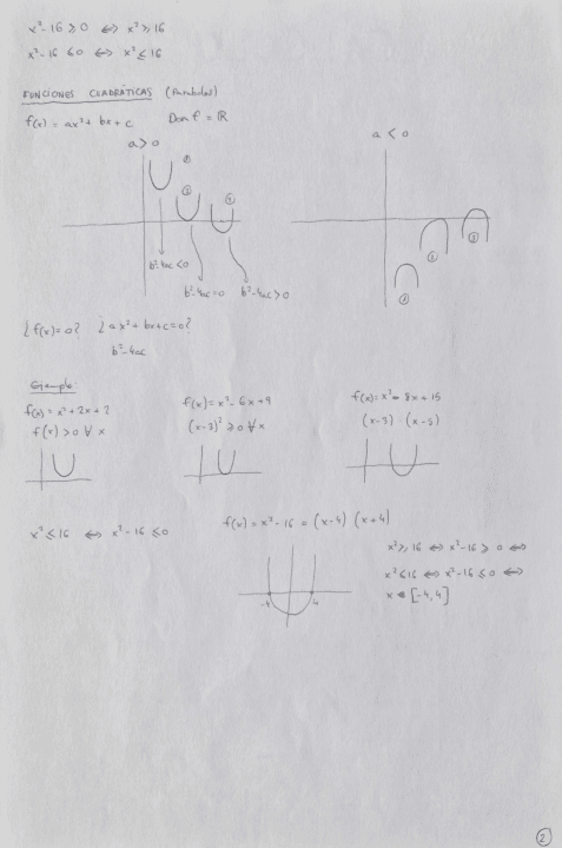 x²-16 ≥ 0 ⇔ x² ≥ 16
x²-16 ≤ 0 ⇔ x² ≤ 16
FUNCIONES CUADRÁTICAS (Parábolas)
f(x) = ax²+ bx + c Dom f = ℝ
a > 0
a < 0
①
②
③
b²-4ac < 0
b²-4ac = 0 b²-4ac > 0
③
¿f(x)=0? ¿ax²+bx+c=0?
b²-4ac
Ejemplo:
f(x) = x²+2x+2
f(x) > 0 ∀ x
f(x) = x²-6x+9
(x-3)² ≥ 0 ∀ x
f(x) = x²-8x+15
(x-3)·(x-5)
x² ≤ 16 ⇔ x²-16 ≤ 0
f(x) = x²-16 = (x-4) (x+4)
-4 4
x² ≥ 16 ⇔ x²-16 ≥ 0 ⇔
x² ≤ 16 ⇔ x²-16 ≤ 0 ⇔
x ∈ [-4,4]
②